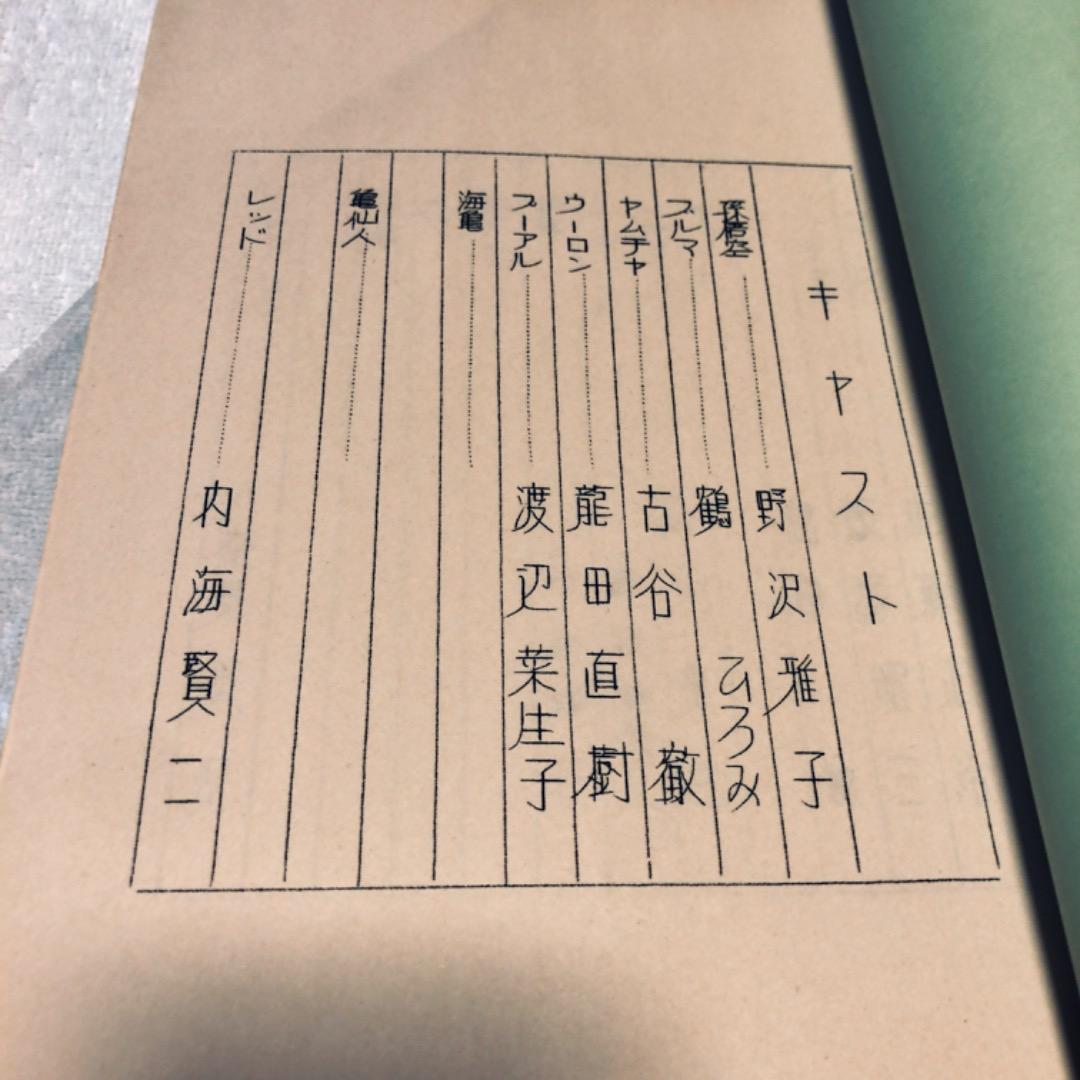 キャスト
孫悟空 野沢雅子
ブルマ 鶴ひろみ
ヤムチャ 古谷徹
ウーロン 龍田直樹
プーアル 渡辺菜生子
海亀
亀仙人
レッド 内海賢二